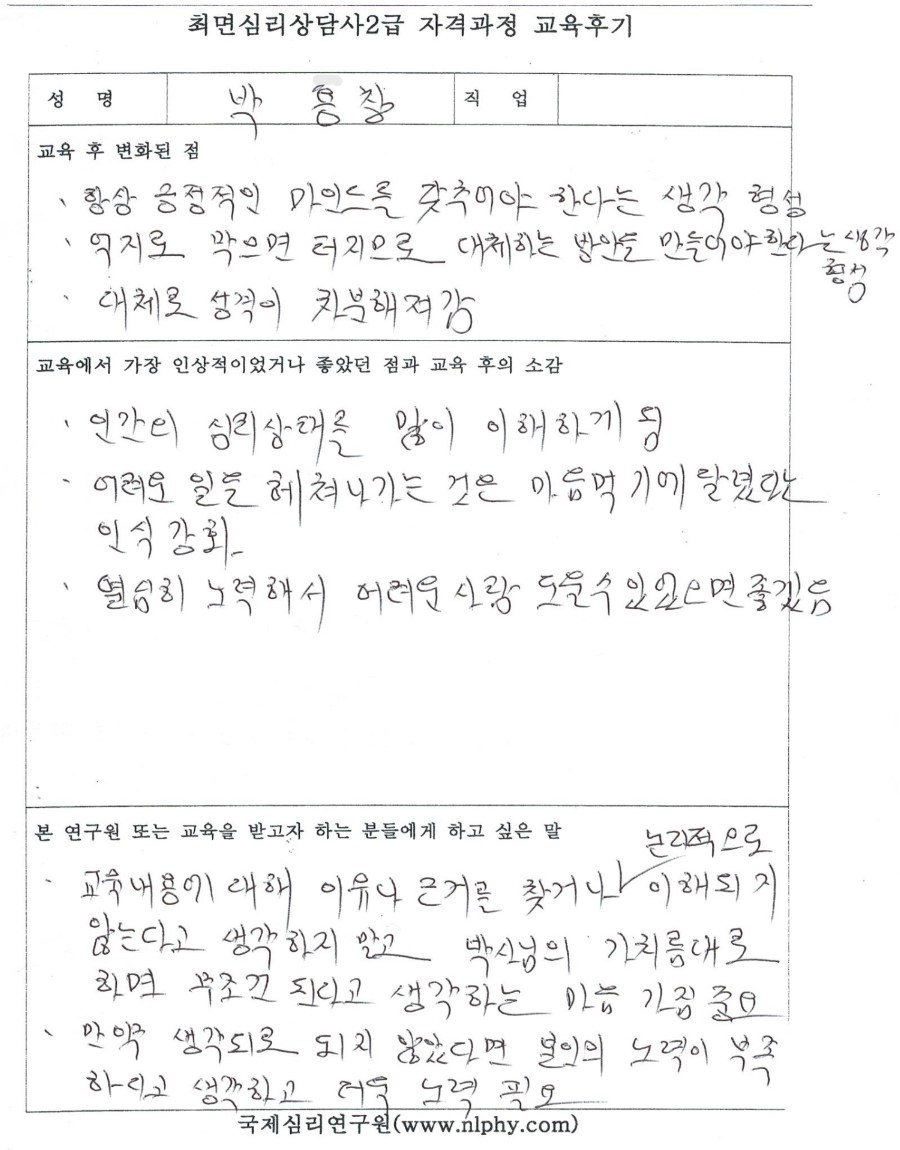 최면심리상담사2급 자격과정 교육후기
성 명 박 용 창 직 업
교육 후 변화된 점
· 항상 긍정적인 마인드를 갖추어야 한다는 생각 형성
· 억지로 막으면 터지므로 대체하는 방안을 만들어야한다는생각
형성
· 대체로 성격이 차분해져감
교육에서 가장 인상적이었거나 좋았던 점과 교육 후의 소감
· 인간의 심리상태를 많이 이해하게 됨
· 어려운 일을 헤쳐나가는 것은 마음먹기에 달렸다는
인식 강화
· 열심히 노력해서 어려운 사람 도울수 있었으면 좋겠음
본 연구원 또는 교육을 받고자 하는 분들에게 하고 싶은 말
논리적으로
· 교육내용에 대해 이유나 근거를 찾거나 이해되지
않는다고 생각하지 말고 박사님의 가치름대로
하면 무조건 된다고 생각하는 마음 가짐 중요
· 만약 생각되로 되지 않았다면 본인의 노력이 부족
하다고 생각하고 더욱 노력 필요
국제심리연구원(www.nlphy.com)